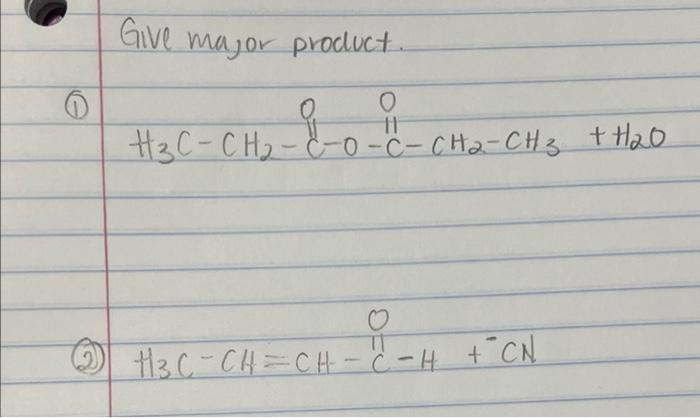 Give major product.
①
O O
H3C-CH2-C-O-C-CH2-CH3 + H2O
O
② H3C-CH=CH-C-H + ⁻CN